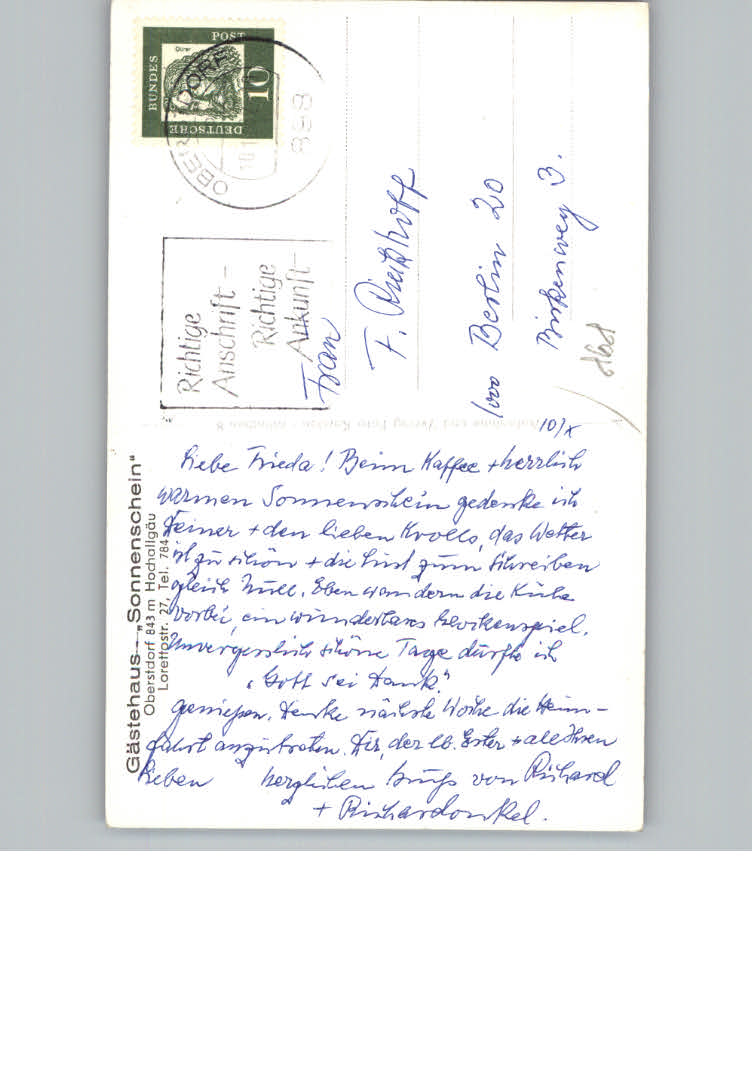 DEUTSCHE
BUNDES
POST
Dürer
10
OBERSTDORF
898
Richtige
Anschrift –
Richtige
Ankunft
Frau
F.
1000 Berlin 20
Birkenweg 3.
10/X
Gästehaus „Sonnenschein“
Oberstdorf 843 m Hochallgäu
Lorettostr. 27, Tel. 784
Liebe Frieda! Beim Kaffee + herrlich
warmen Sonnenschein gedenke ich
Deiner + den lieben Krolls, das Wetter
ist zu schön + die Lust zum Schreiben
gleich Null. Eben wandern die Kühe
vorbei, ein wunderbares Glockenspiel.
Unvergesslich schöne Tage durfte ich
„Gott sei Dank“
geniessen. Denke nächste Woche die Heim-
fahrt anzutreten. Dir, der lb. Ester + alle Ihren
Lieben herzlichen Gruss von Richard
+ Richardonkel.